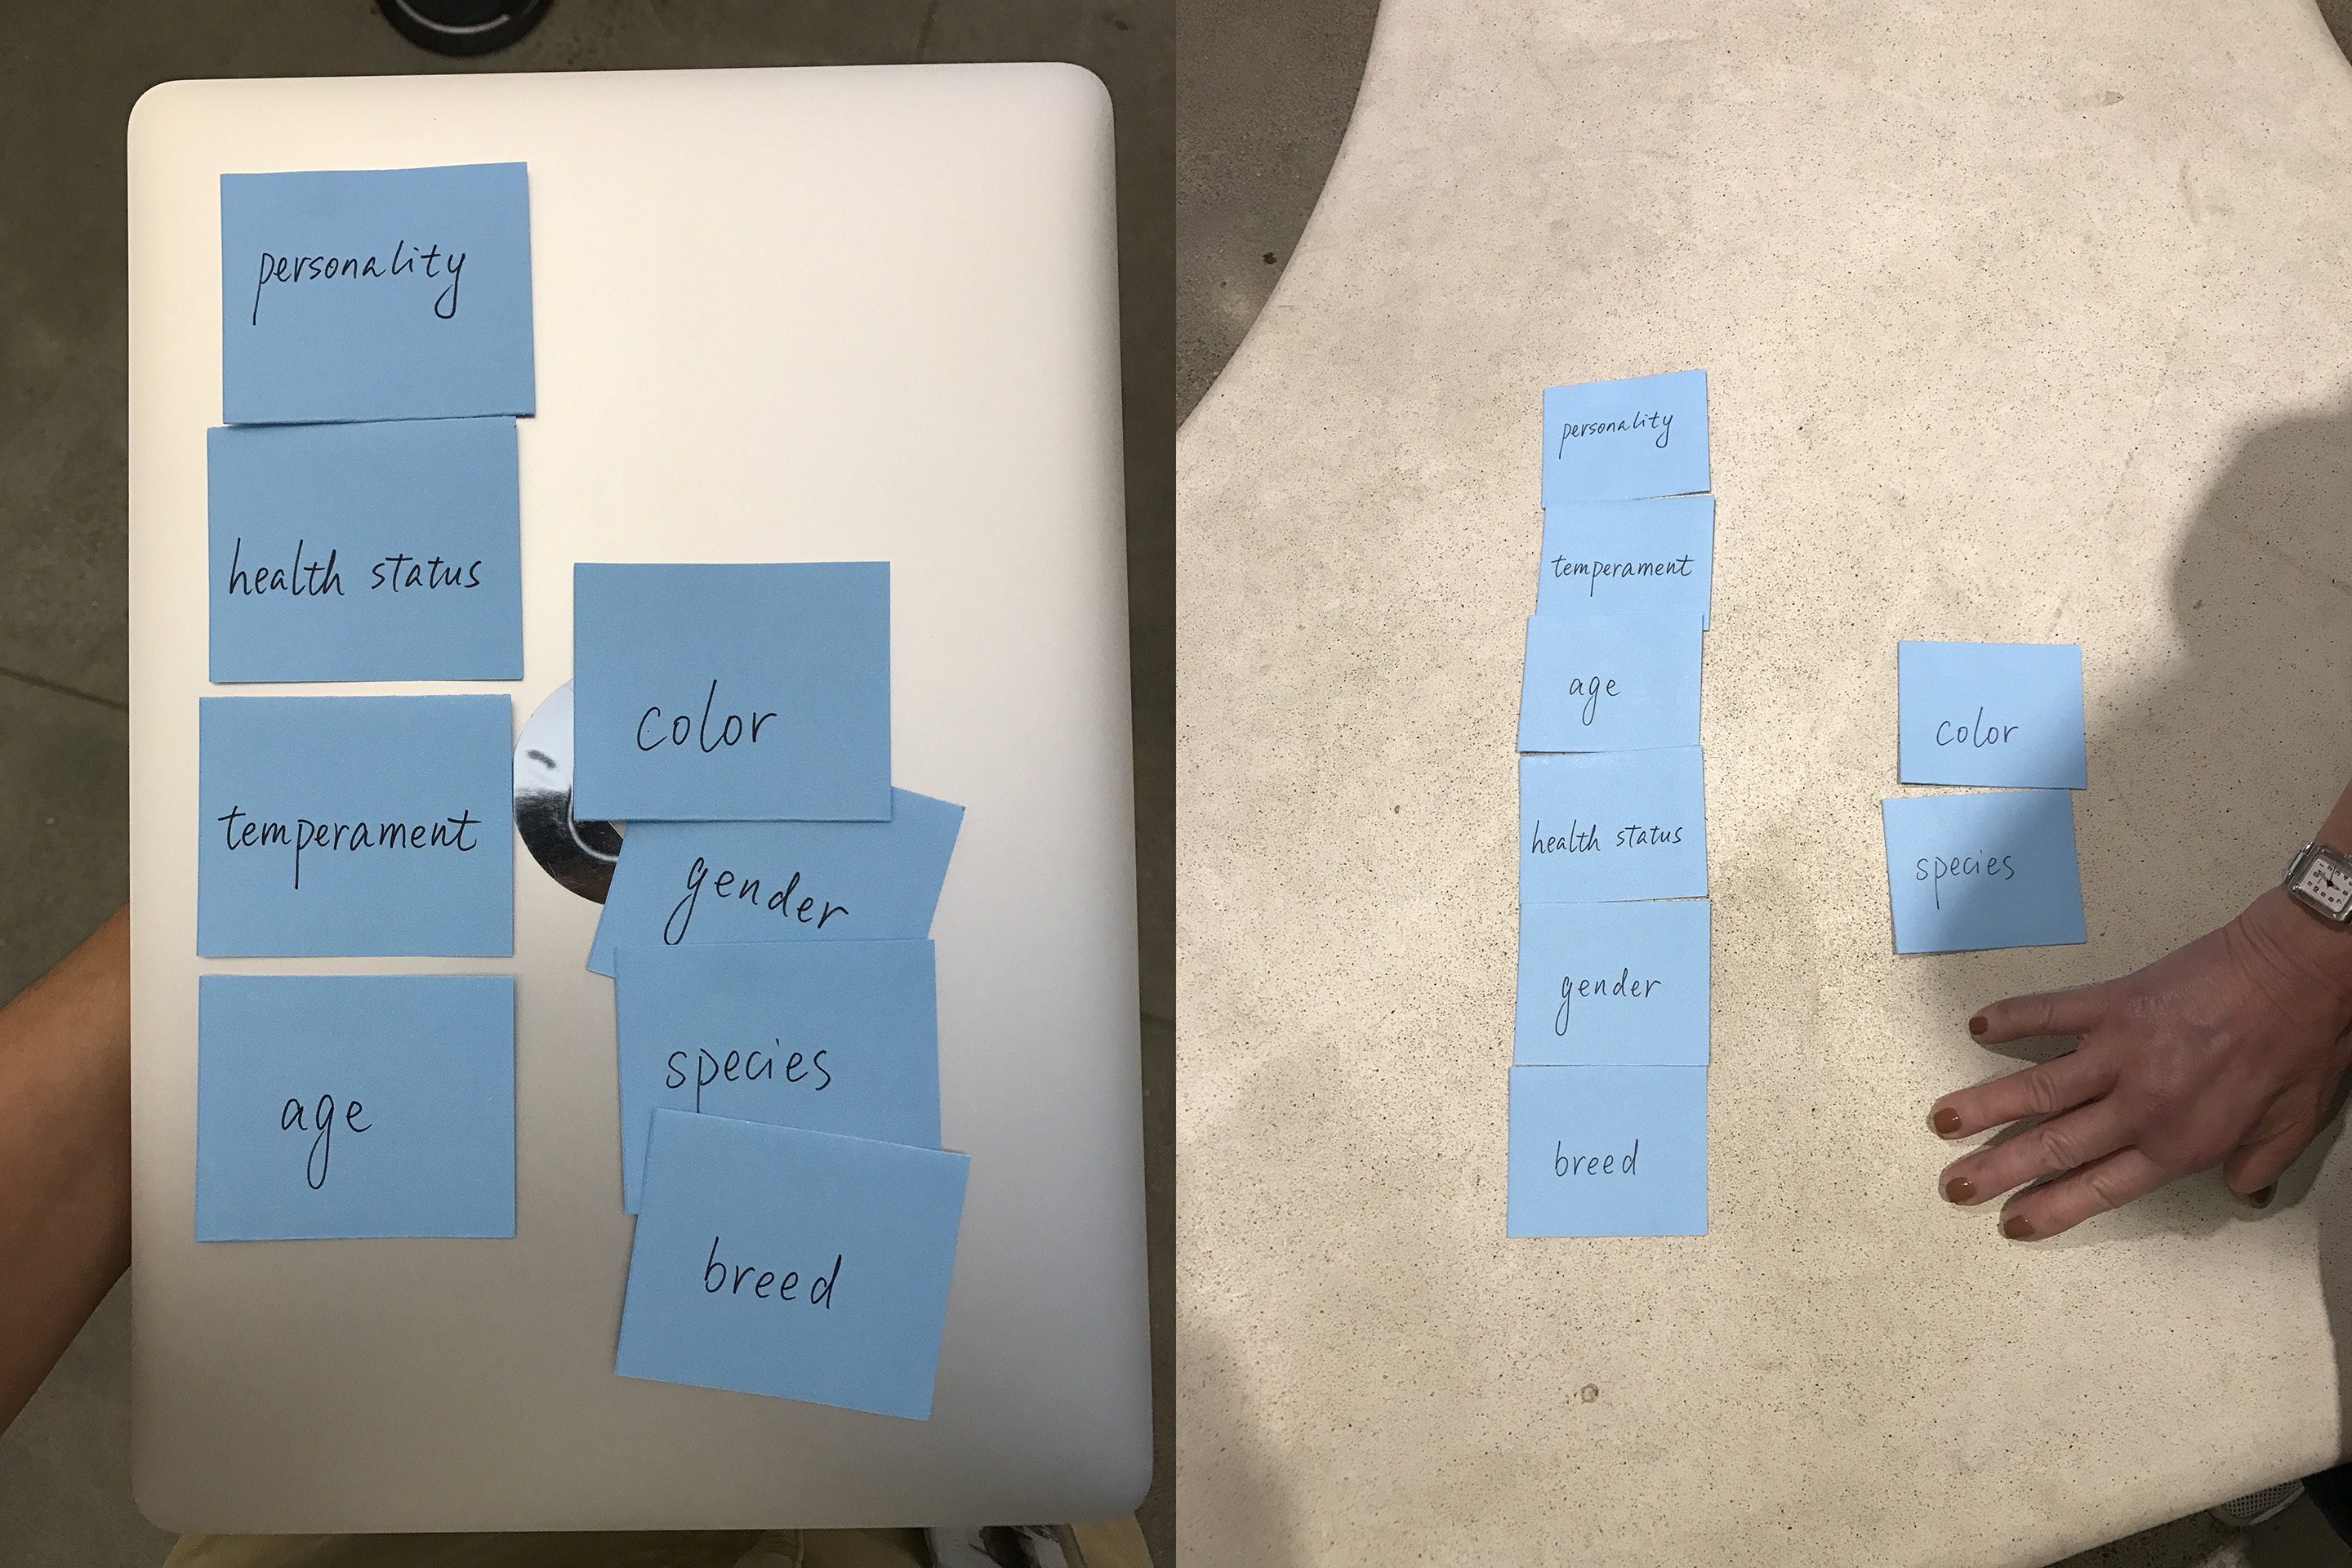 personality
health status
temperament
age
color
gender
species
breed
personality
temperament
age
health status
gender
breed
color
species